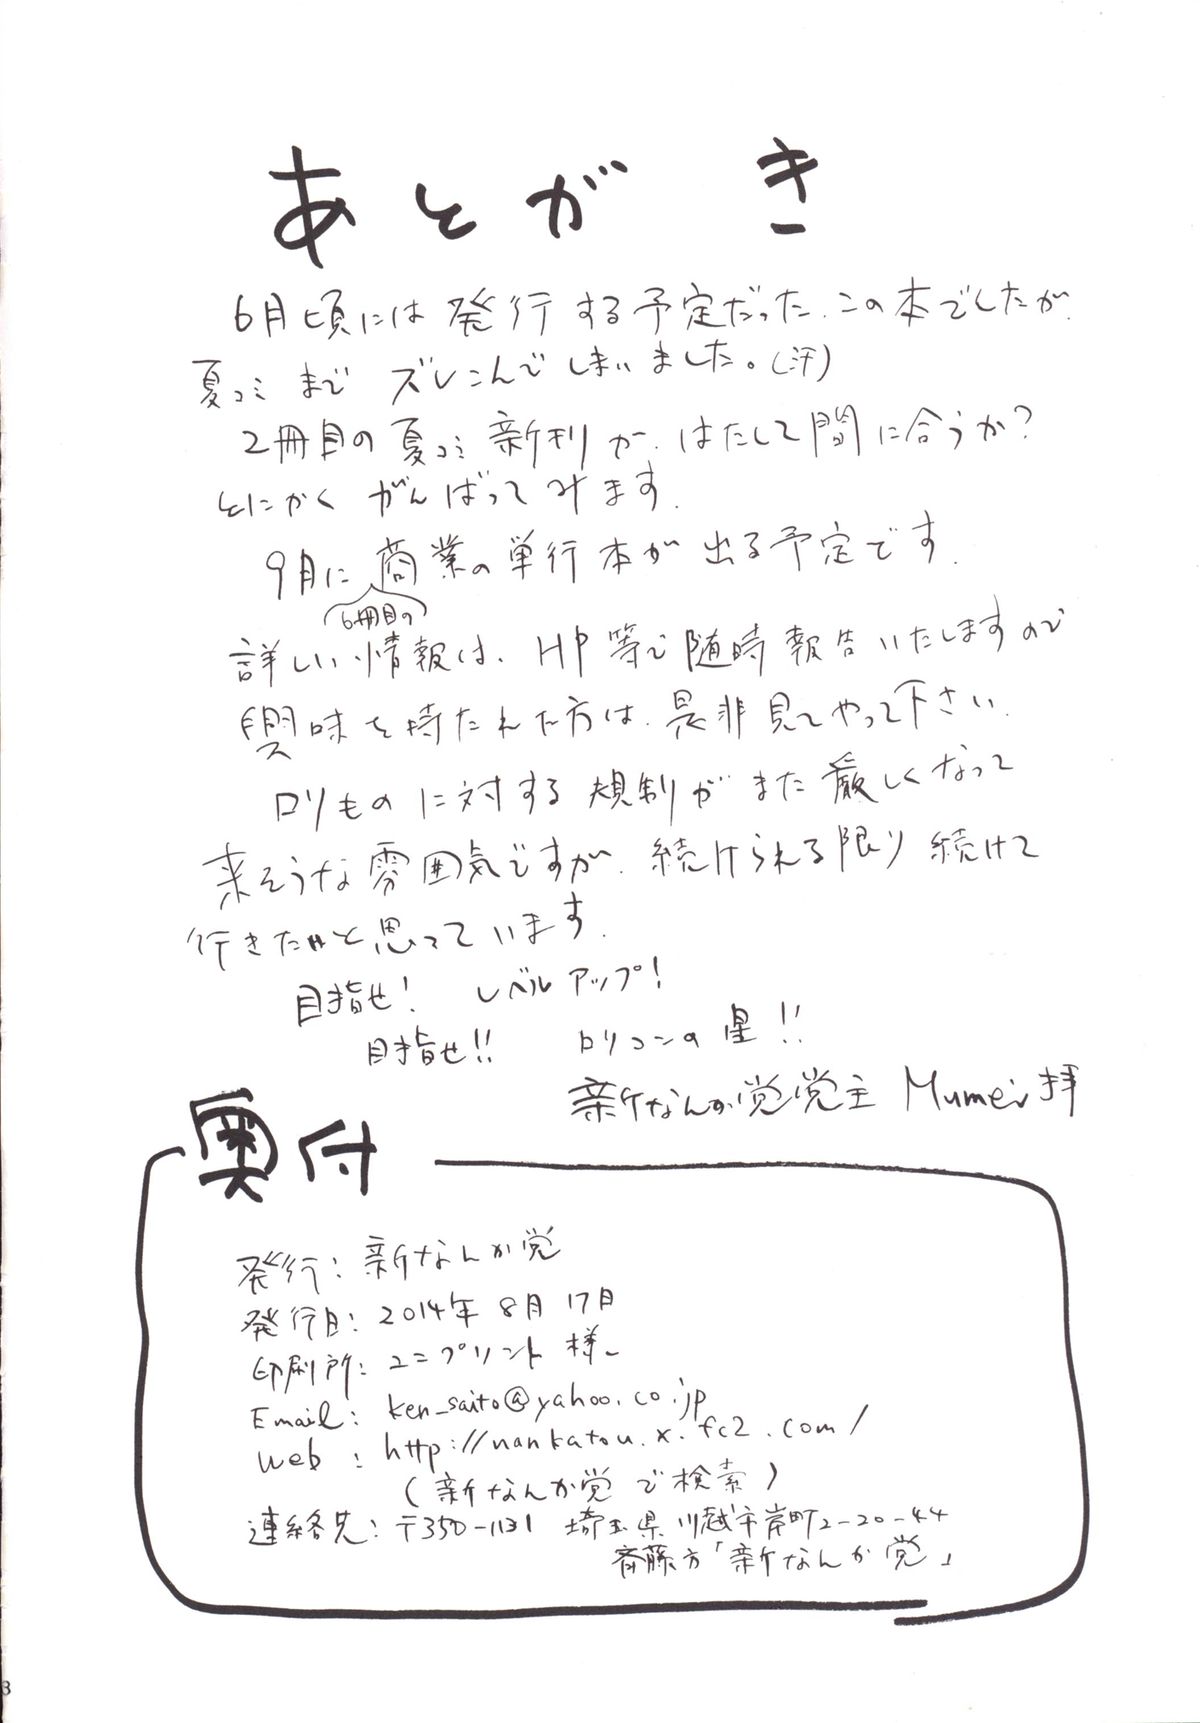 あとがき
6月頃には発行する予定だった、この本でしたが、
夏コミまでズレこんでしまいました。(汗)
2冊目の夏コミ新刊が、はたして間に合うか?
とにかくがんばってみます.
9月に商業の単行本が出る予定です.
6冊目の
詳しい情報は、HP等で随時報告いたしますので
興味を持たれた方は、是非見てやって下さい.
ロリものに対する規制がまた厳しくなって
来そうな雰囲気ですが、続けられる限り続けて
行きたいと思っています.
目指せ! レベルアップ!
目指せ!! ロリコンの星!!
新なんか党党主 Mumei拝
奥付
発行: 新なんか党
発行日: 2014年 8月 17日
印刷所: ユニプリント 様
Email: ken_saito@yahoo.co.jp
Web : http://nankatou.x.fc2.com/
(新なんか党で検索)
連絡先: 〒350-1131 埼玉県川越市岸町2-20-44
斉藤方「新なんか党」
3